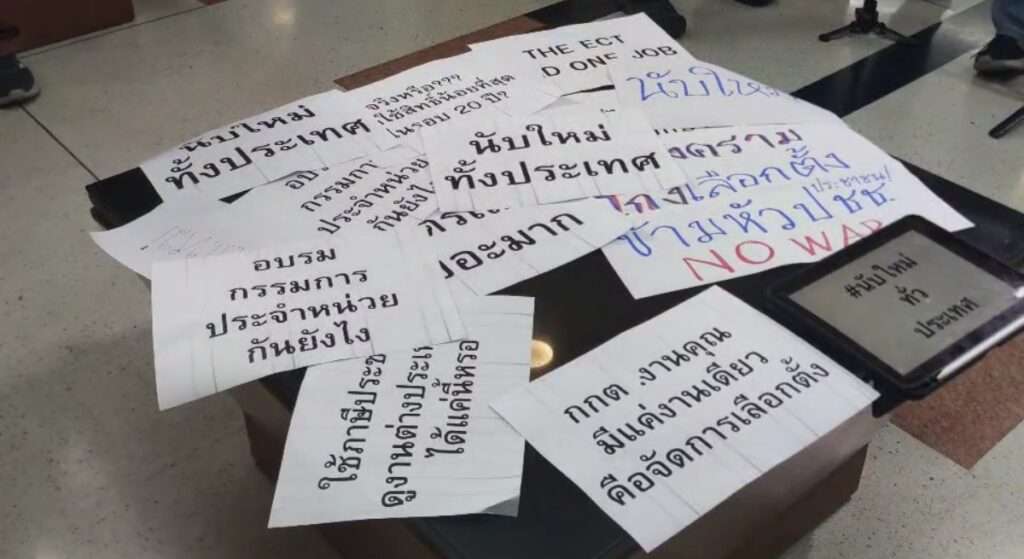 THE ECT
D ONE JOB
จริงหรือ???
ใช้สิทธิน้อยที่สุด
ในรอบ 20 ปี?
นับใหม่
ทั่งประเทศ
นับใหม่
ทั่งประเทศ
นับใหม่
กรรมกา
ประจำหน่วย
กันยังไง
เลือกตั้ง
ประชาชน!
ข้ามหัวปชช.
NO WAR
อบรม
กรรมการ
ประจำหน่วย
กันยังไง
#นับใหม่
ทั่ว
ประเทศ
ใช้ภาษีประช
ดูงานต่างประเ
ได้แค่นี้หรอ
กกต .งานคุณ
มีแค่งานเดียว
คือจัดการเลือกตั้ง